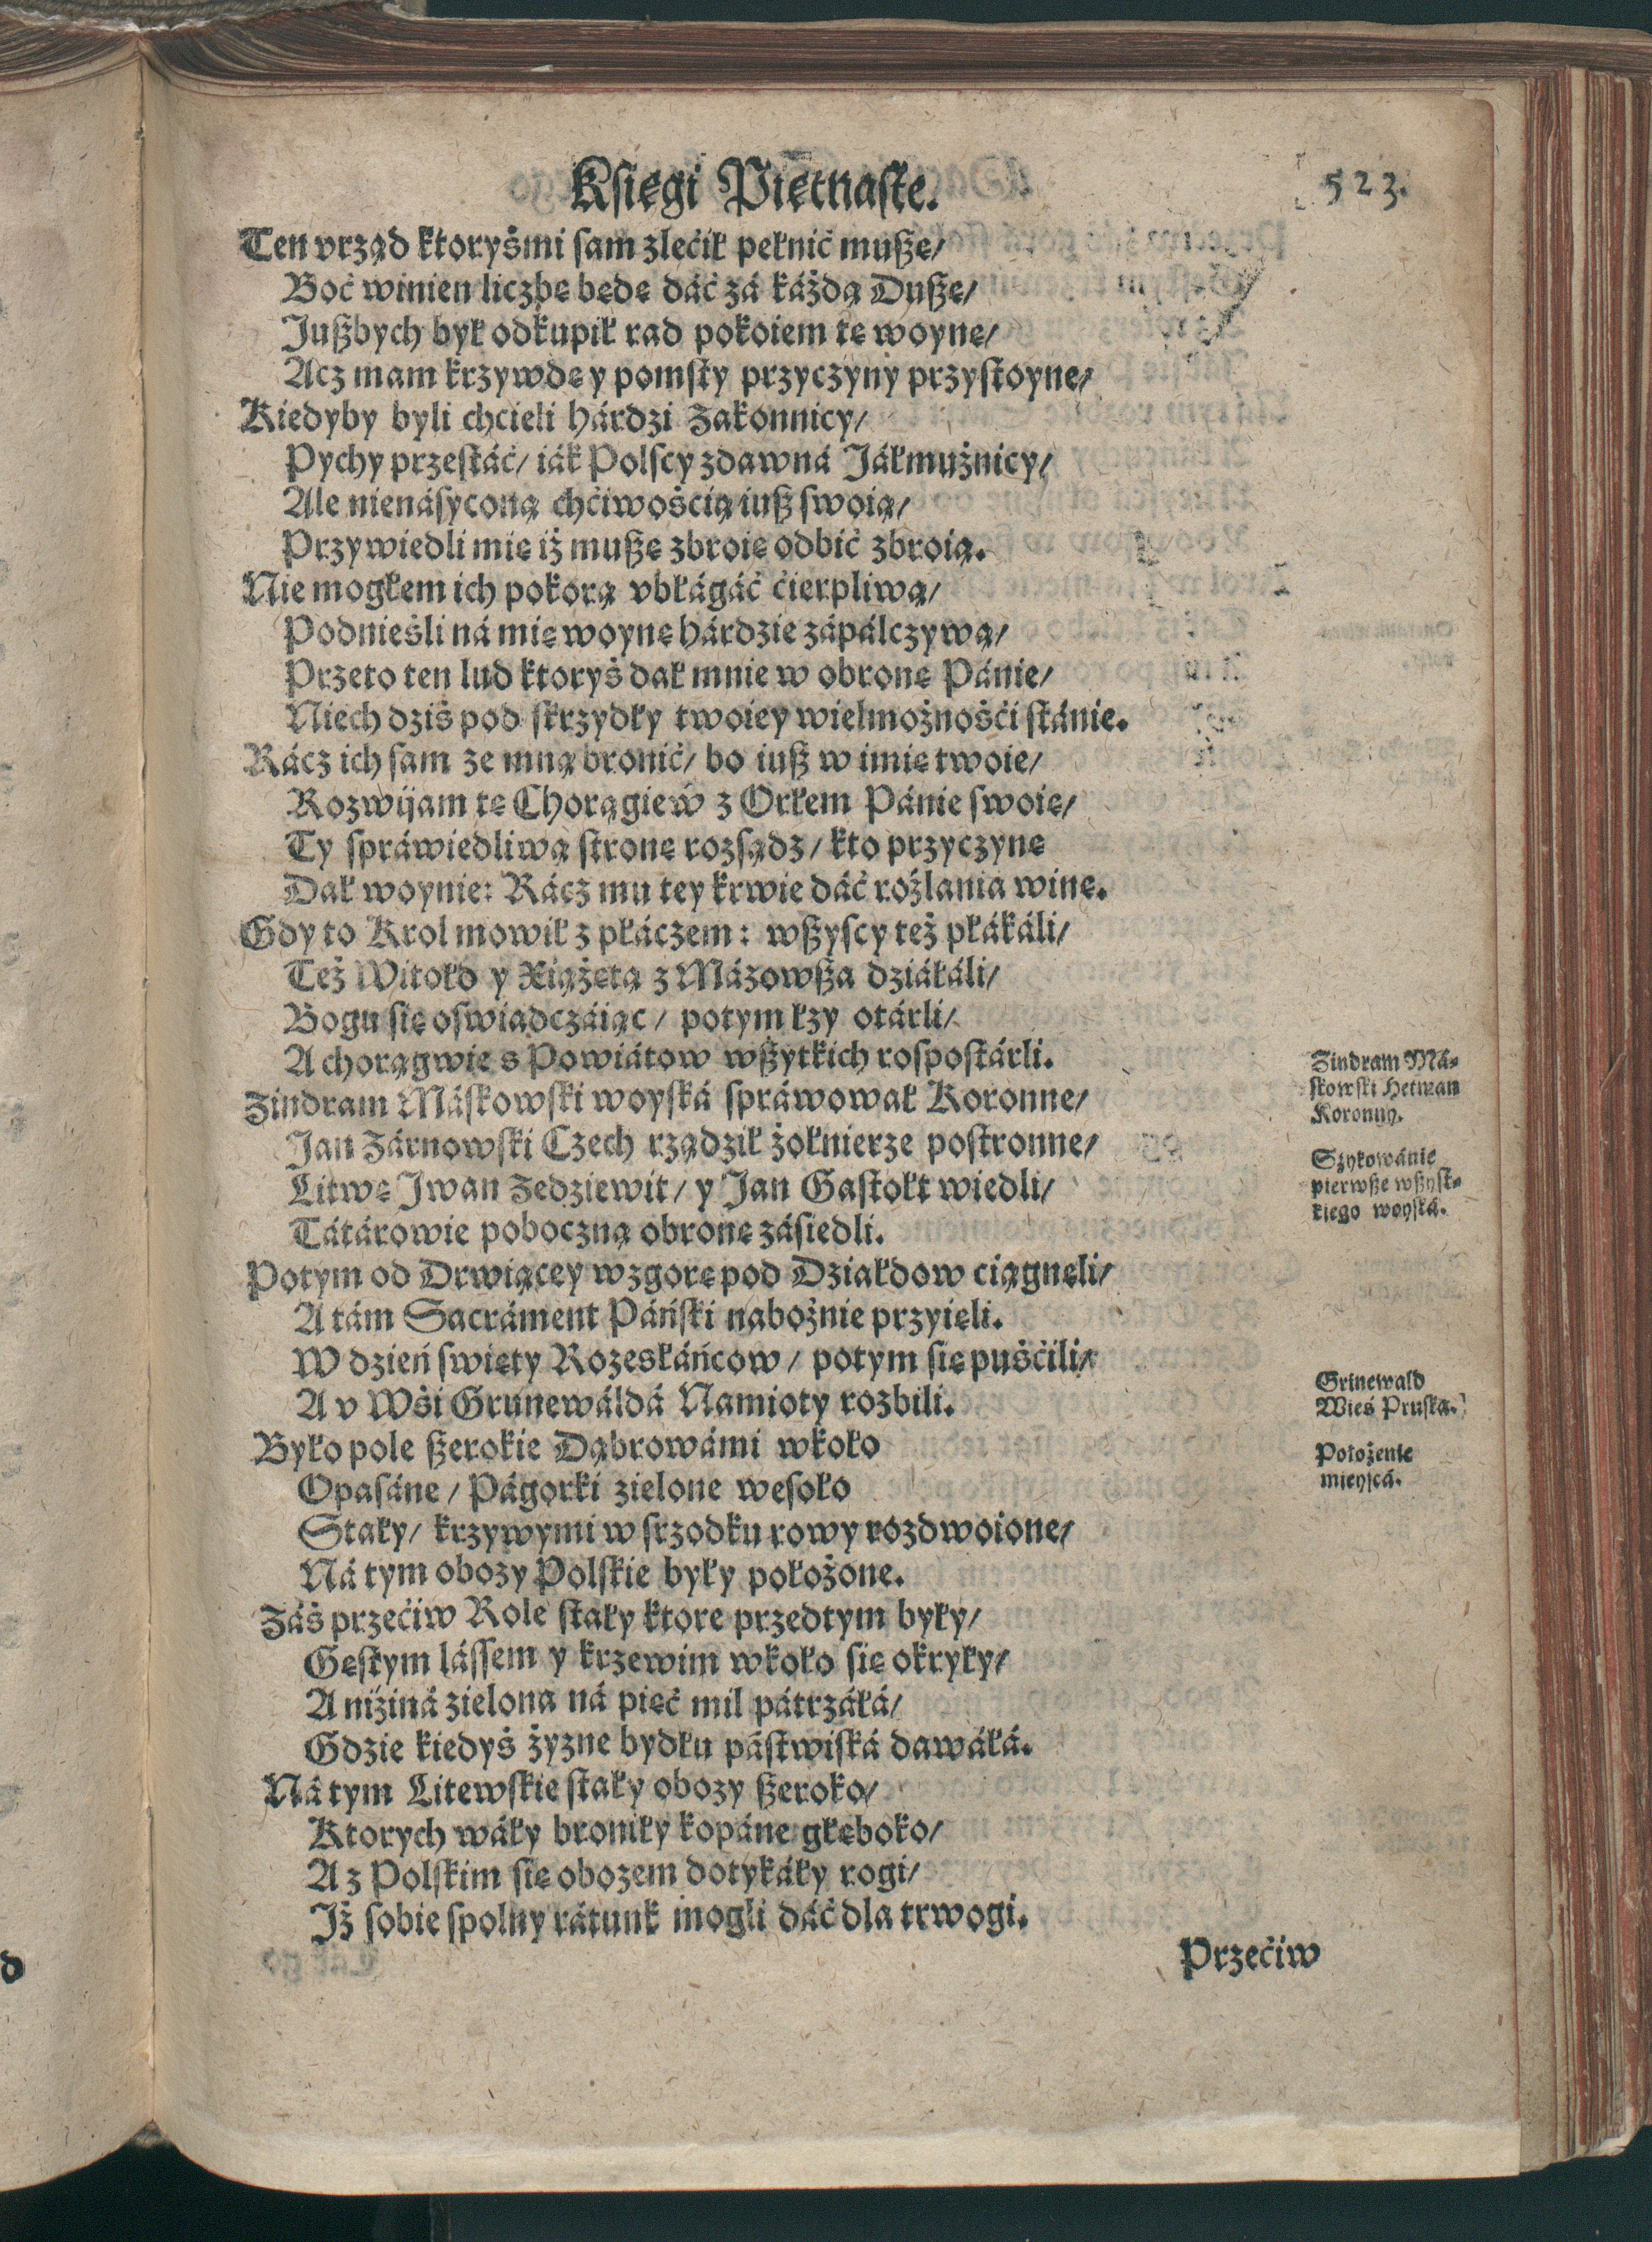 Księgi Piętnaste.
523.
Ten vrząd ktoryśmi sam zlećił pełnić muszę/
Boć winien liczbę będę dáć zá káżdą Duszę/
Juszbych był odkupił rad pokoiem tę woynę/
Acz mam krzywdę y pomsty przyczyny przystoyne/
Kiedyby byli chcieli hárdzi Zakonnicy/
Pychy przestáć/ iák Polscy zdawná Jáłmużnicy/
Ale nienásyconą chćiwośćią iusz swoią/
Przywiedli mię iż muszę zbroię odbić zbroią.
Nie mogłem ich pokorą vbłágáć ćierpliwą/
Podnieśli ná mię woynę hárdzie zápálczywą/
Przeto ten lud ktoryś dał mnie w obronę Pánie/
Niech dziś pod skrzydły twoiey wielmożnośći stánie.
Rácz ich sam ze mną bronić/ bo iusz w imię twoie/
Rozwijam tę Chorągiew z Orłem Pánie swoię/
Ty spráwiedliwą stronę rozsądz/ kto przyczynę
Dał woynie: Rácz mu tey krwie dáć rozlania winę.
Gdy to Krol mowił z płáczem: wszyscy też płákáli/
Też Witołd y Xiążętá z Mázowsza dziáłáli/
Bogu się oswiadczáiąc/ potym łzy otárli/
A chorągwie s Powiátow wszytkich rospostárli.
Zindram Máskowski woyská spráwował Koronne/
Jan Zárnowski Czech rządził żołnierze postronne/
Litwę Jwan Zedziewit/ y Jan Gastołt wiedli/
Tátárowie poboczną obronę zásiedli.
Potym od Drwiącey wzgorę pod Dziáłdow ciągnęli/
A tám Sacráment Páński nabożnie przyięli.
W dzień swięty Rozesłáńcow/ potym się puśćili/
A v Wśi Grunewáldá Namioty rozbili.
Było pole szerokie Dąbrowámi wkoło
Opasáne/ Págorki zielone wesoło
Stały/ krzywymi w srzodku rowy rozdwoione/
Ná tym obozy Polskie były położone.
Záś przećiw Role stały ktore przedtym były/
Gęstym lássem y krzewim wkoło się okryły/
A niziná zielona ná pięć mil pátrzáłá/
Gdzie kiedyś żyzne bydłu pástwiská dawáłá.
Ná tym Litewskie stały obozy szeroko/
Ktorych wáły broniły kopáne głęboko/
A z Polskim się obozem dotykáły rogi/
Jż sobie spolny rátunk mogli dáć dla trwogi.
Przećiw
Zindram Má-
skowski Hetman
Koronny.
Szykowánie
pierwsze wszyst-
kiego woyská.
Grinewald
Wieś Pruska.
Położenie
mieyscá.